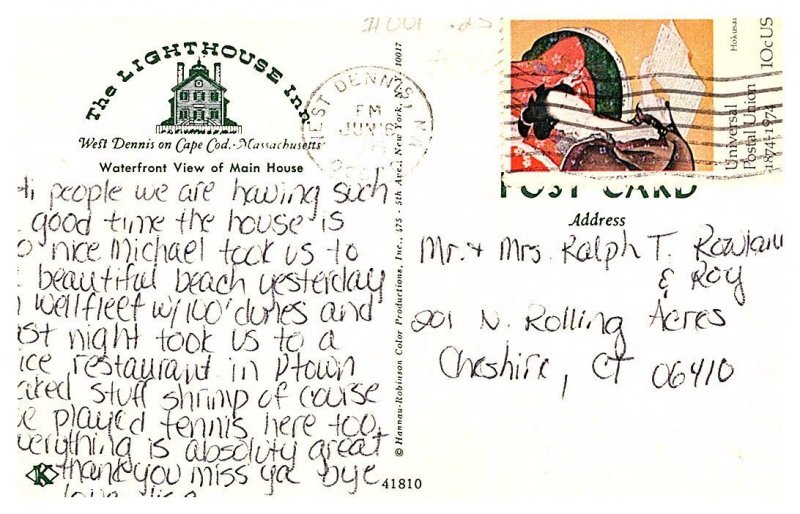 #001 .25
The LIGHTHOUSE Inn
West Dennis on Cape Cod · Massachusetts
Waterfront View of Main House
people we are having such
good time the house is
nice Michael took us to
beautiful beach yesterday
wellfleet w/100' dunes and
night took us to a
restaurant in Ptown
stuff shrimp of course
played tennis here too
everything is absoluty great
thank you miss ya bye
love
K
© Hannau-Robinson Color Productions, Inc., 475 - 5th Ave., New York, N.Y. 10017
41810
WEST DENNIS, MA
PM
JUN 6
Hokusai
10c US
Universal
Postal Union
1874-1974
POST CARD
Address
Mr. + Mrs. Ralph T.
& Roy
201 N. Rolling Acres
Cheshire, CT 06410